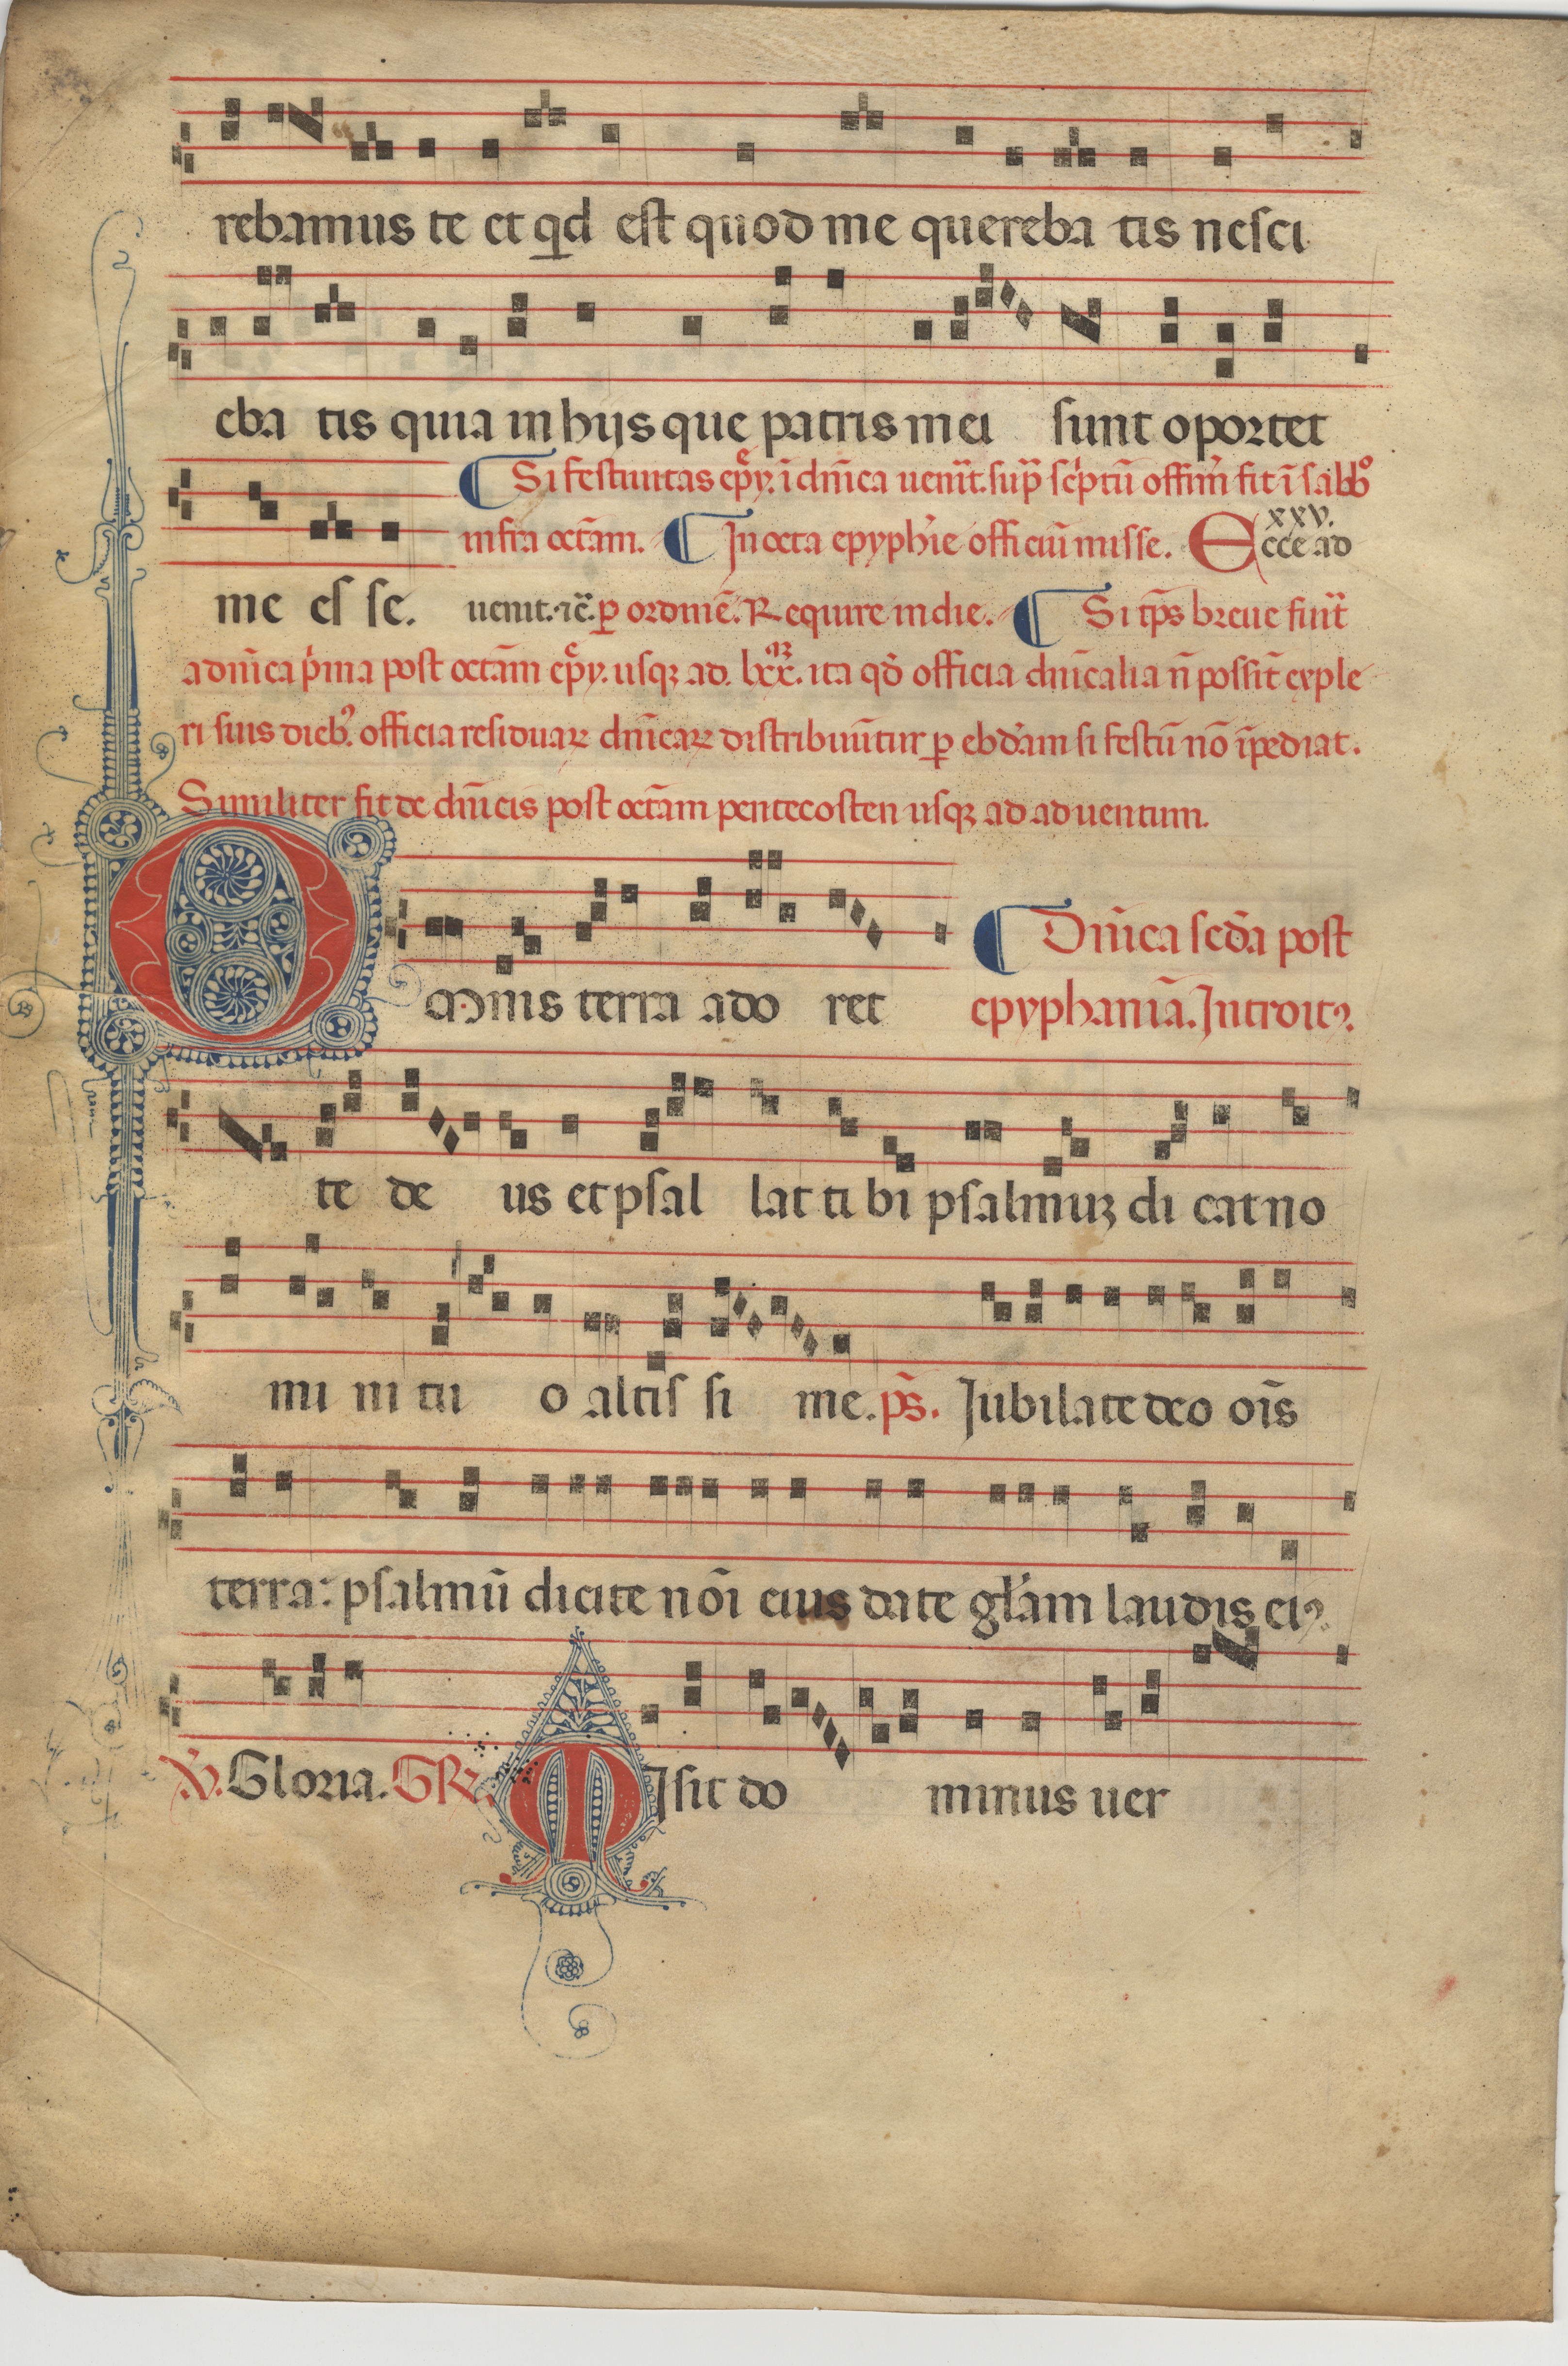 rebamus te et qd est quod me quereba tis nesci
eba tis quia in hijs que patris mei sunt oportet
Si festiuitas epy. i dnica uenit. sup scptu offm fit i sabbo
infra octam. In octa epyphie officiu misse. Ecce ad
xxv.
me es se. uenit. ⁊c̄. p ordine. Require in die. Si tps breue fuit
a dnica pma post octam epy. usqꝫ ad. lxx. ita qd officia dnicalia n possit exple
ri suis dieb. officia residuaꝝ dnicaꝝ distribuutur p ebdam si festu no ipediat.
Similiter fit de dnicis post octam pentecosten usqꝫ ad aduentum.
Omnis terra ado ret Dnica scda post
epyphania. Introitꝰ.
te de us et psal lat ti bi psalmuꝫ di cat no
mi ni tu o altis si me. ps. Iubilate deo ois
terra: psalmu dicite noi eius date glam laudis eiꝰ.
V. Gloria. GR. MIsit do minus uer